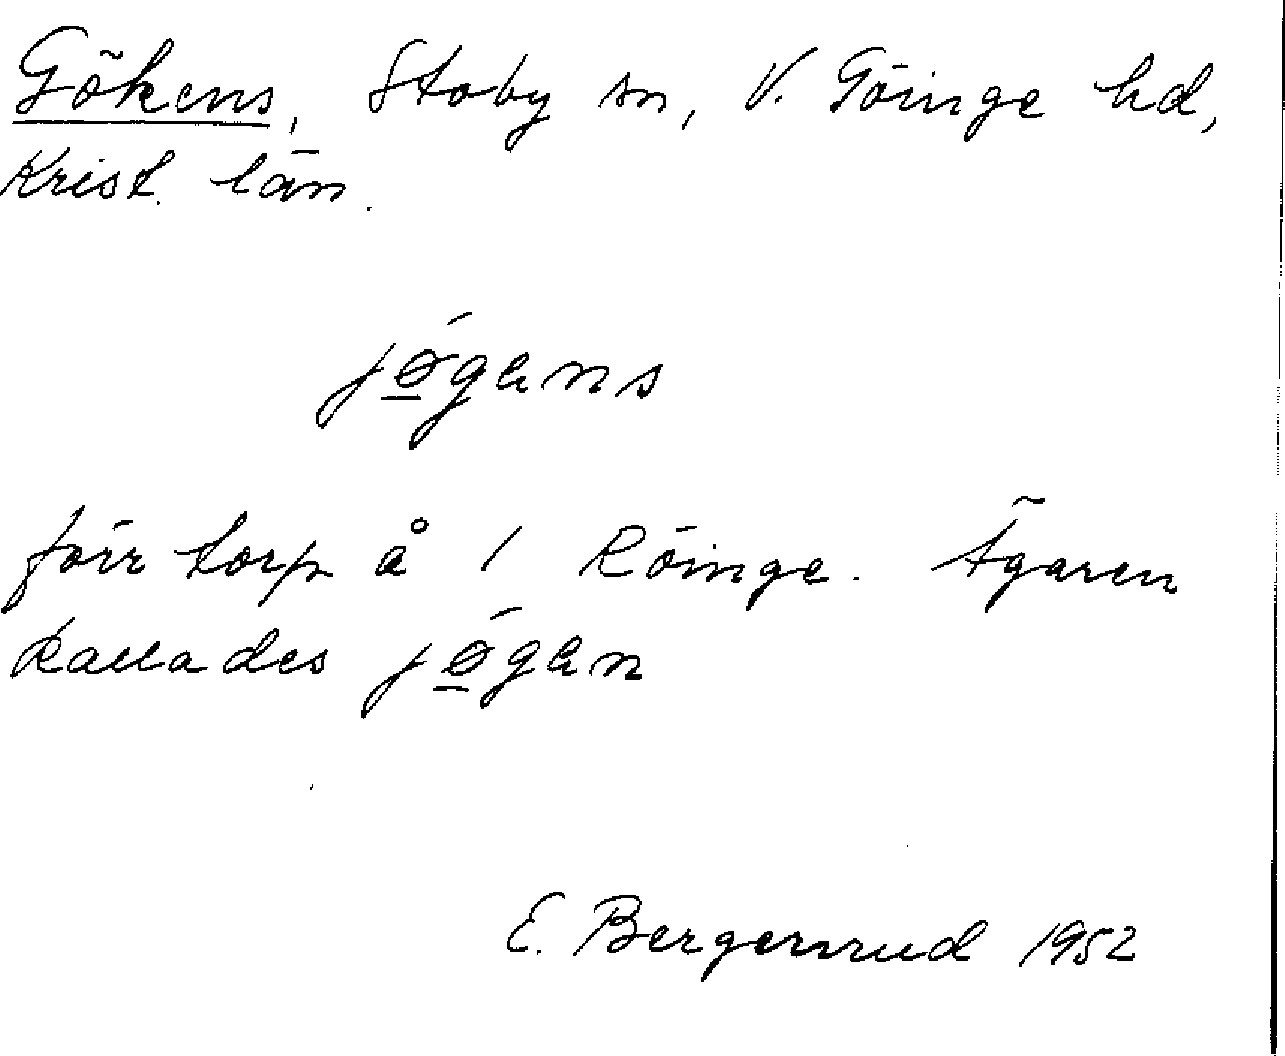 Gökens, Stoby sn, V. Göinge hd,
Krist. län.
jǿ̠gans
förr torp å 1 Röinge. Ägaren
kallades jǿ̠gan
E. Bergenrud 1952